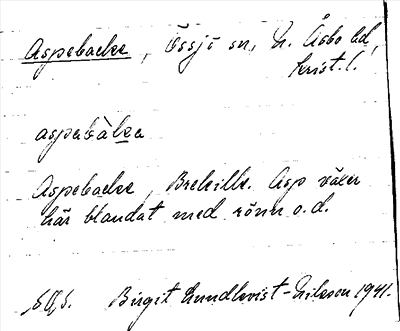 Aspebacke, Össjö sn, N. Åsbo hd,
krist. l.
aspebàka
Aspebacke, Brehills. Asp växer
här blandat med rönn o.d.
Birgit Lundkvist-Nilsson 1941.